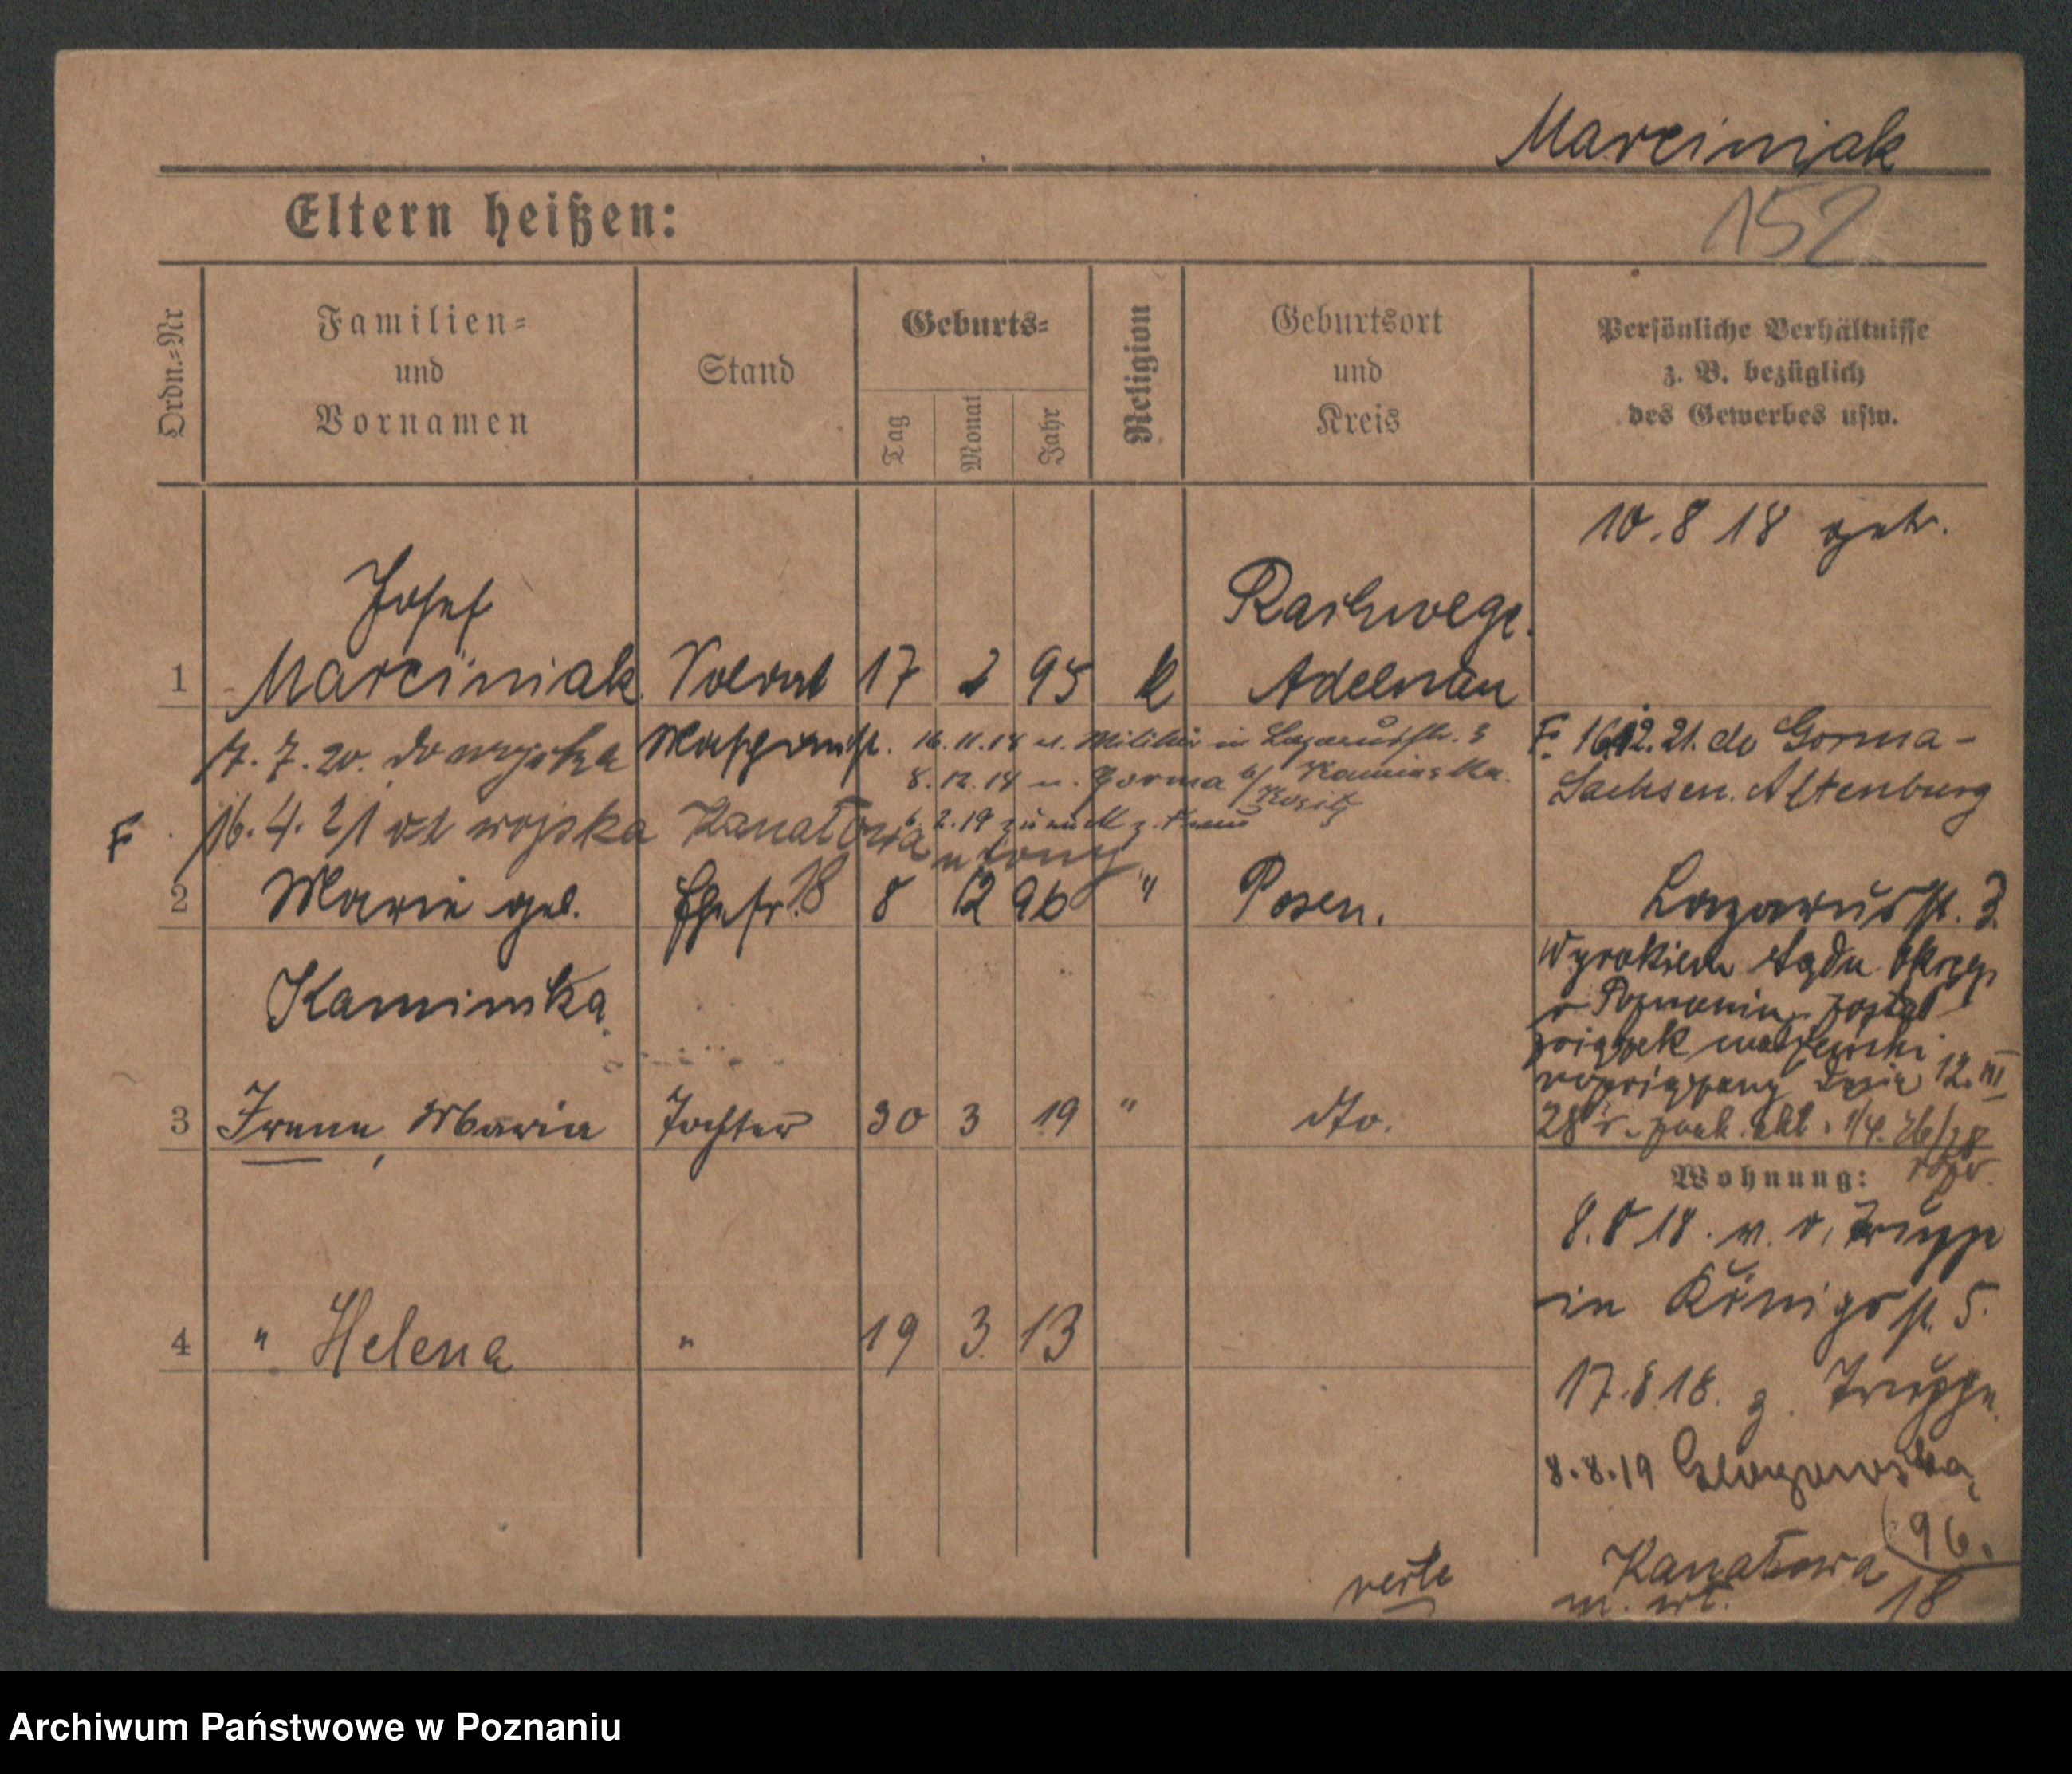 Marciniak
152
Eltern heißen:
Ordn.-Nr
Familien-
und
Vornamen
Stand
Geburts-
Tag
Monat
Jahr
Religion
Geburtsort
und
Kreis
Persönliche Verhältnisse
z. B. bezüglich
des Gewerbes usw.
10.8 18 getr.
Josef
1 Marciniak Soldat 17 2 95 k
Adelnau
17.7.20. do wojska
16.11.18 v. Militär in Lazarusstr. 3
8.12.18 n. Gorma b/ Kaminska
Rositz
6.2.19 zurück z. Frau
F. 16.12.21. do Gorma-
Sachsen. Altenburg
F 16.4.21 od wojska Kanałowa 18
u żony
2 Marie geb. Ehefr. 8 12 96 " Posen.
Kaminska
Lazarusstr. 3.
Wyrokiem Sądu Okręg.
w Poznaniu został
związek małżeński
rozwiązany dnia 12. III
28 r.
3 Irene, Maria Tochter 30 3 19 " dto.
Wohnung:
8.8 18. v. d. Truppe
in Königstr. 5.
4 " Helena " 19 3. 13
17.8 18. z. Truppe.
8.8.19 Glogowska
96.
Kanałowa 18
verte
Archiwum Państwowe w Poznaniu